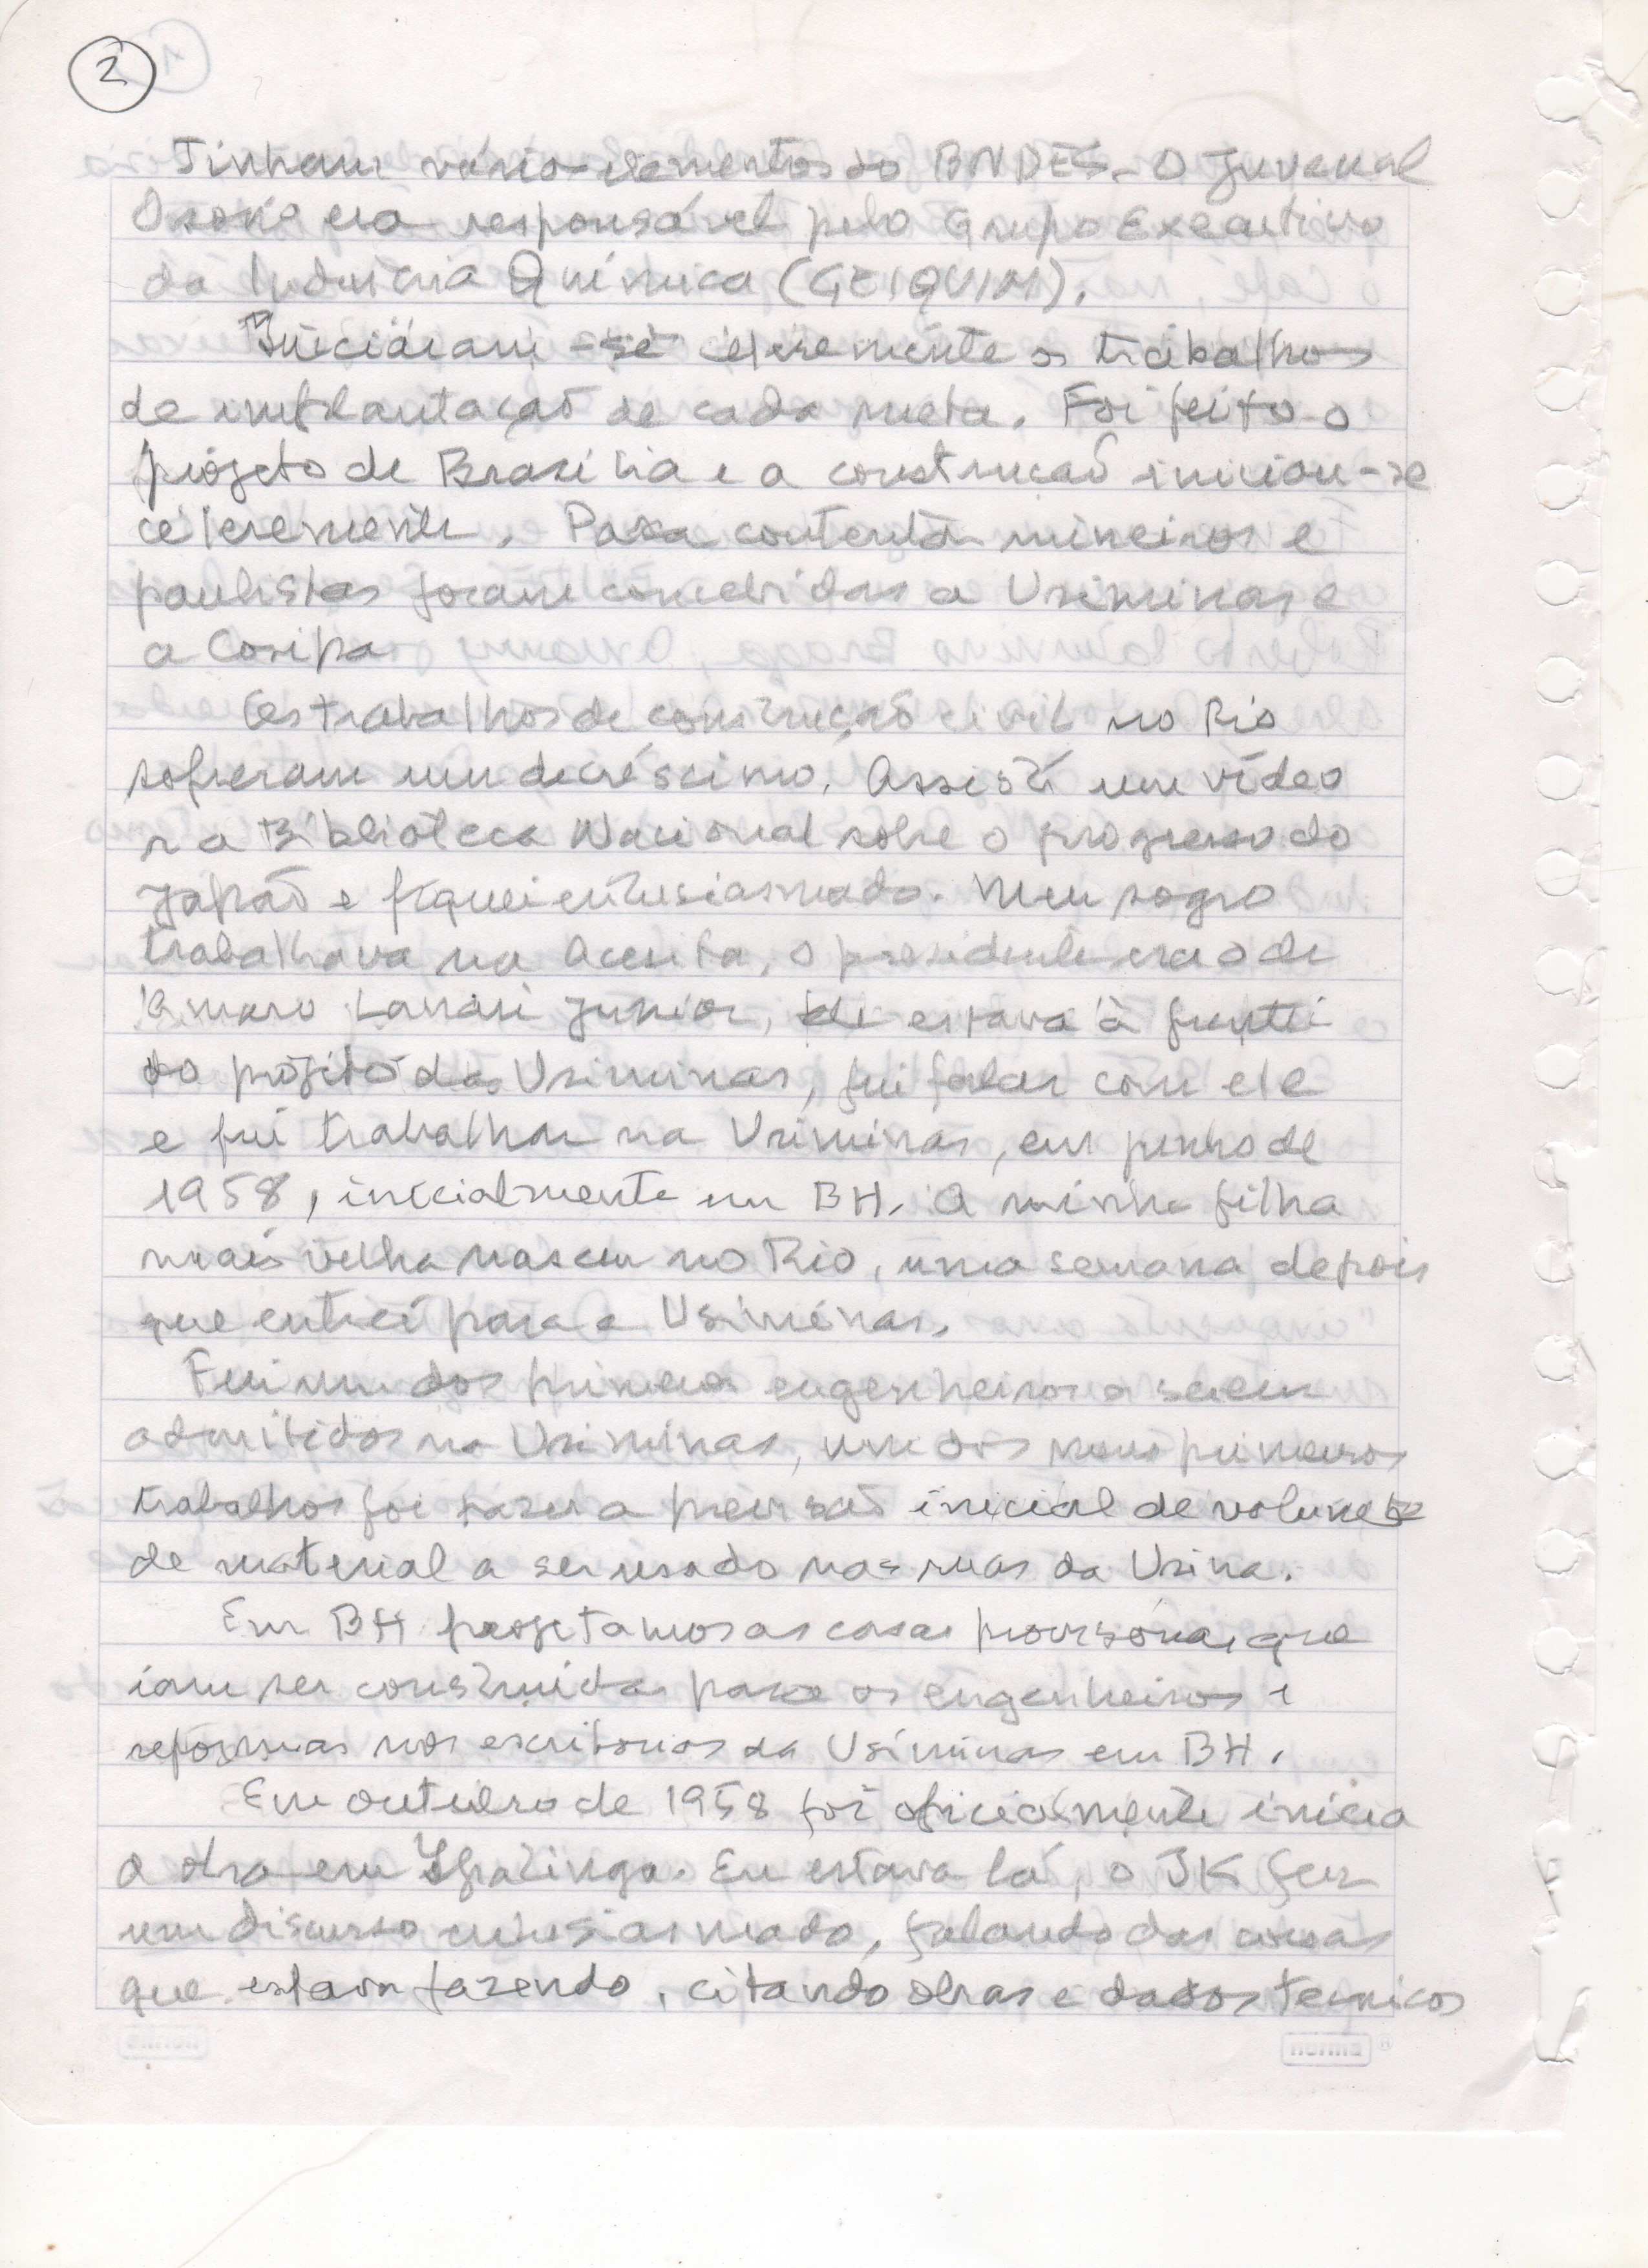 2
Tinham vários elementos do BNDES. O Juvenal
Osório era responsável pelo Grupo Executivo
da Indústria Química (GEIQUIM).
Iniciaram-se celeremente os trabalhos
de implantação de cada meta. Foi feito o
projeto de Brasília e a construção iniciou-se
celeremente. Para contentar mineiros e
paulistas foram concebidas a Usiminas e
a Cosipa
Os trabalhos de construção civil no Rio
sofreram um decréscimo. Assisti um vídeo
na Biblioteca Nacional sobre o progresso do
Japão e fiquei entusiasmado. Meu sogro
trabalhava na Acesita, o presidente era o dr
Amaro Lanari Junior, ele estava à frente
do projeto da Usiminas, fui falar com ele
e fui trabalhar na Usiminas, em junho de
1958, inicialmente em BH. A minha filha
mais velha nasceu no Rio, uma semana depois
que entrei para a Usiminas.
Fui um dos primeiros engenheiros a serem
admitidos na Usiminas, um dos meus primeiros
trabalhos foi fazer a previsão inicial de volume
de material a ser usado nas ruas da Usina.
Em BH projetamos as casas provisórias que
iam ser construidas para os engenheiros e
reformas nos escritorios da Usiminas em BH.
Em outubro de 1958 foi oficialmente inicia
a obra em Ipatinga. Eu estava lá, o JK fez
um discurso entusiasmado, falando das coisas
que estava fazendo, citando obras e dados tecnicos
norma